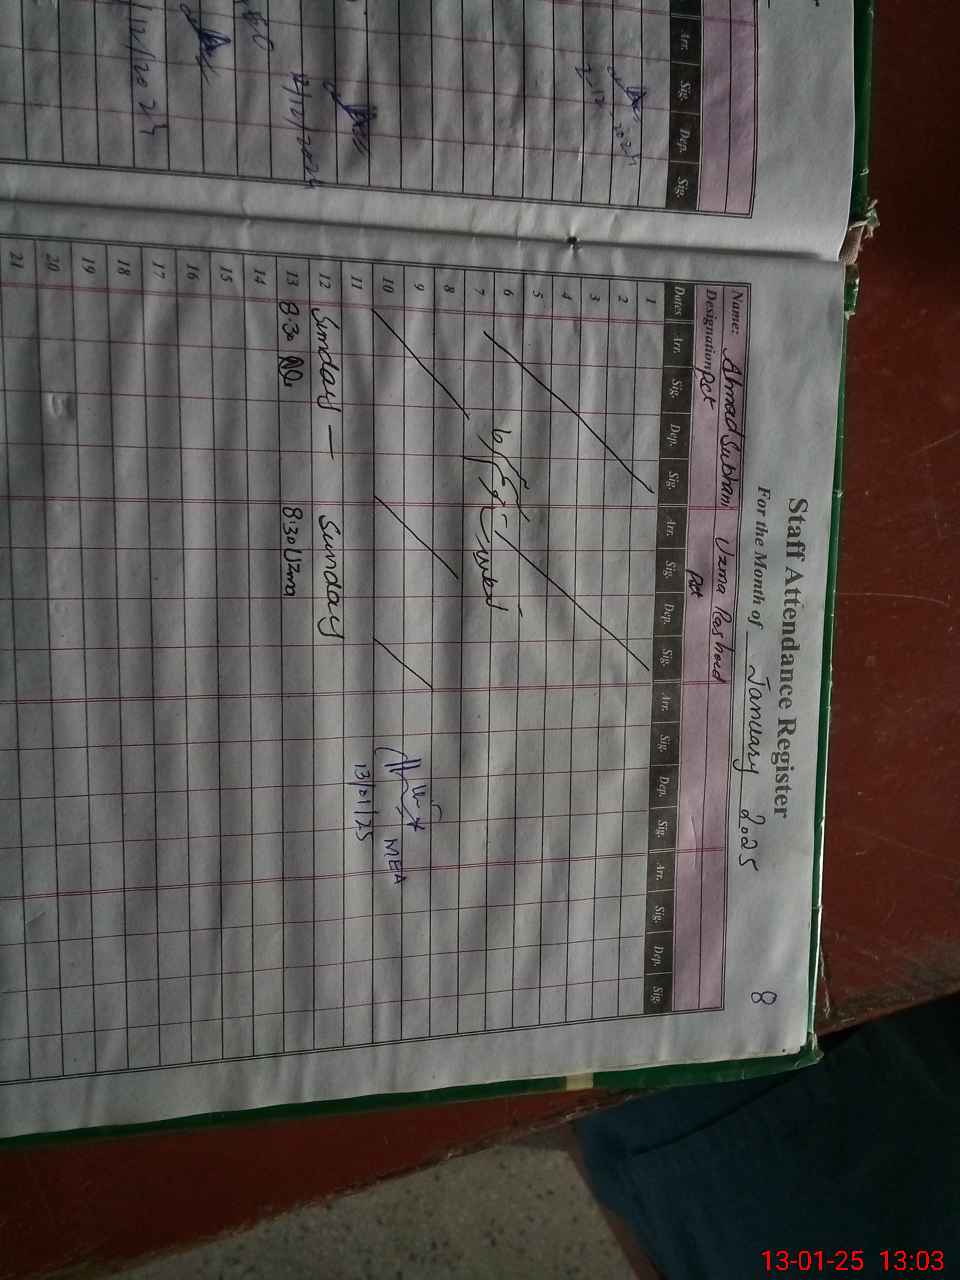 Staff Attendance Register
For the Month of January 2025 8
Name: Ahmad Subhani Uzma Rasheed
Designation: PCT PCT
Dates Arr. Sig. Dep. Sig. Arr. Sig. Dep. Sig. Arr. Sig. Dep. Sig. Arr. Sig. Dep. Sig.
1
2
3
4
5
6
7
8
9
10 MEA
11 13/01/25
12 Sunday — Sunday
13 8:30 8:30 Uzma
14
15
16
17
18
19
20
21
Arr. Sig. Dep. Sig.
2 12 2024
12/12/2024
12/2024
13-01-25 13:03